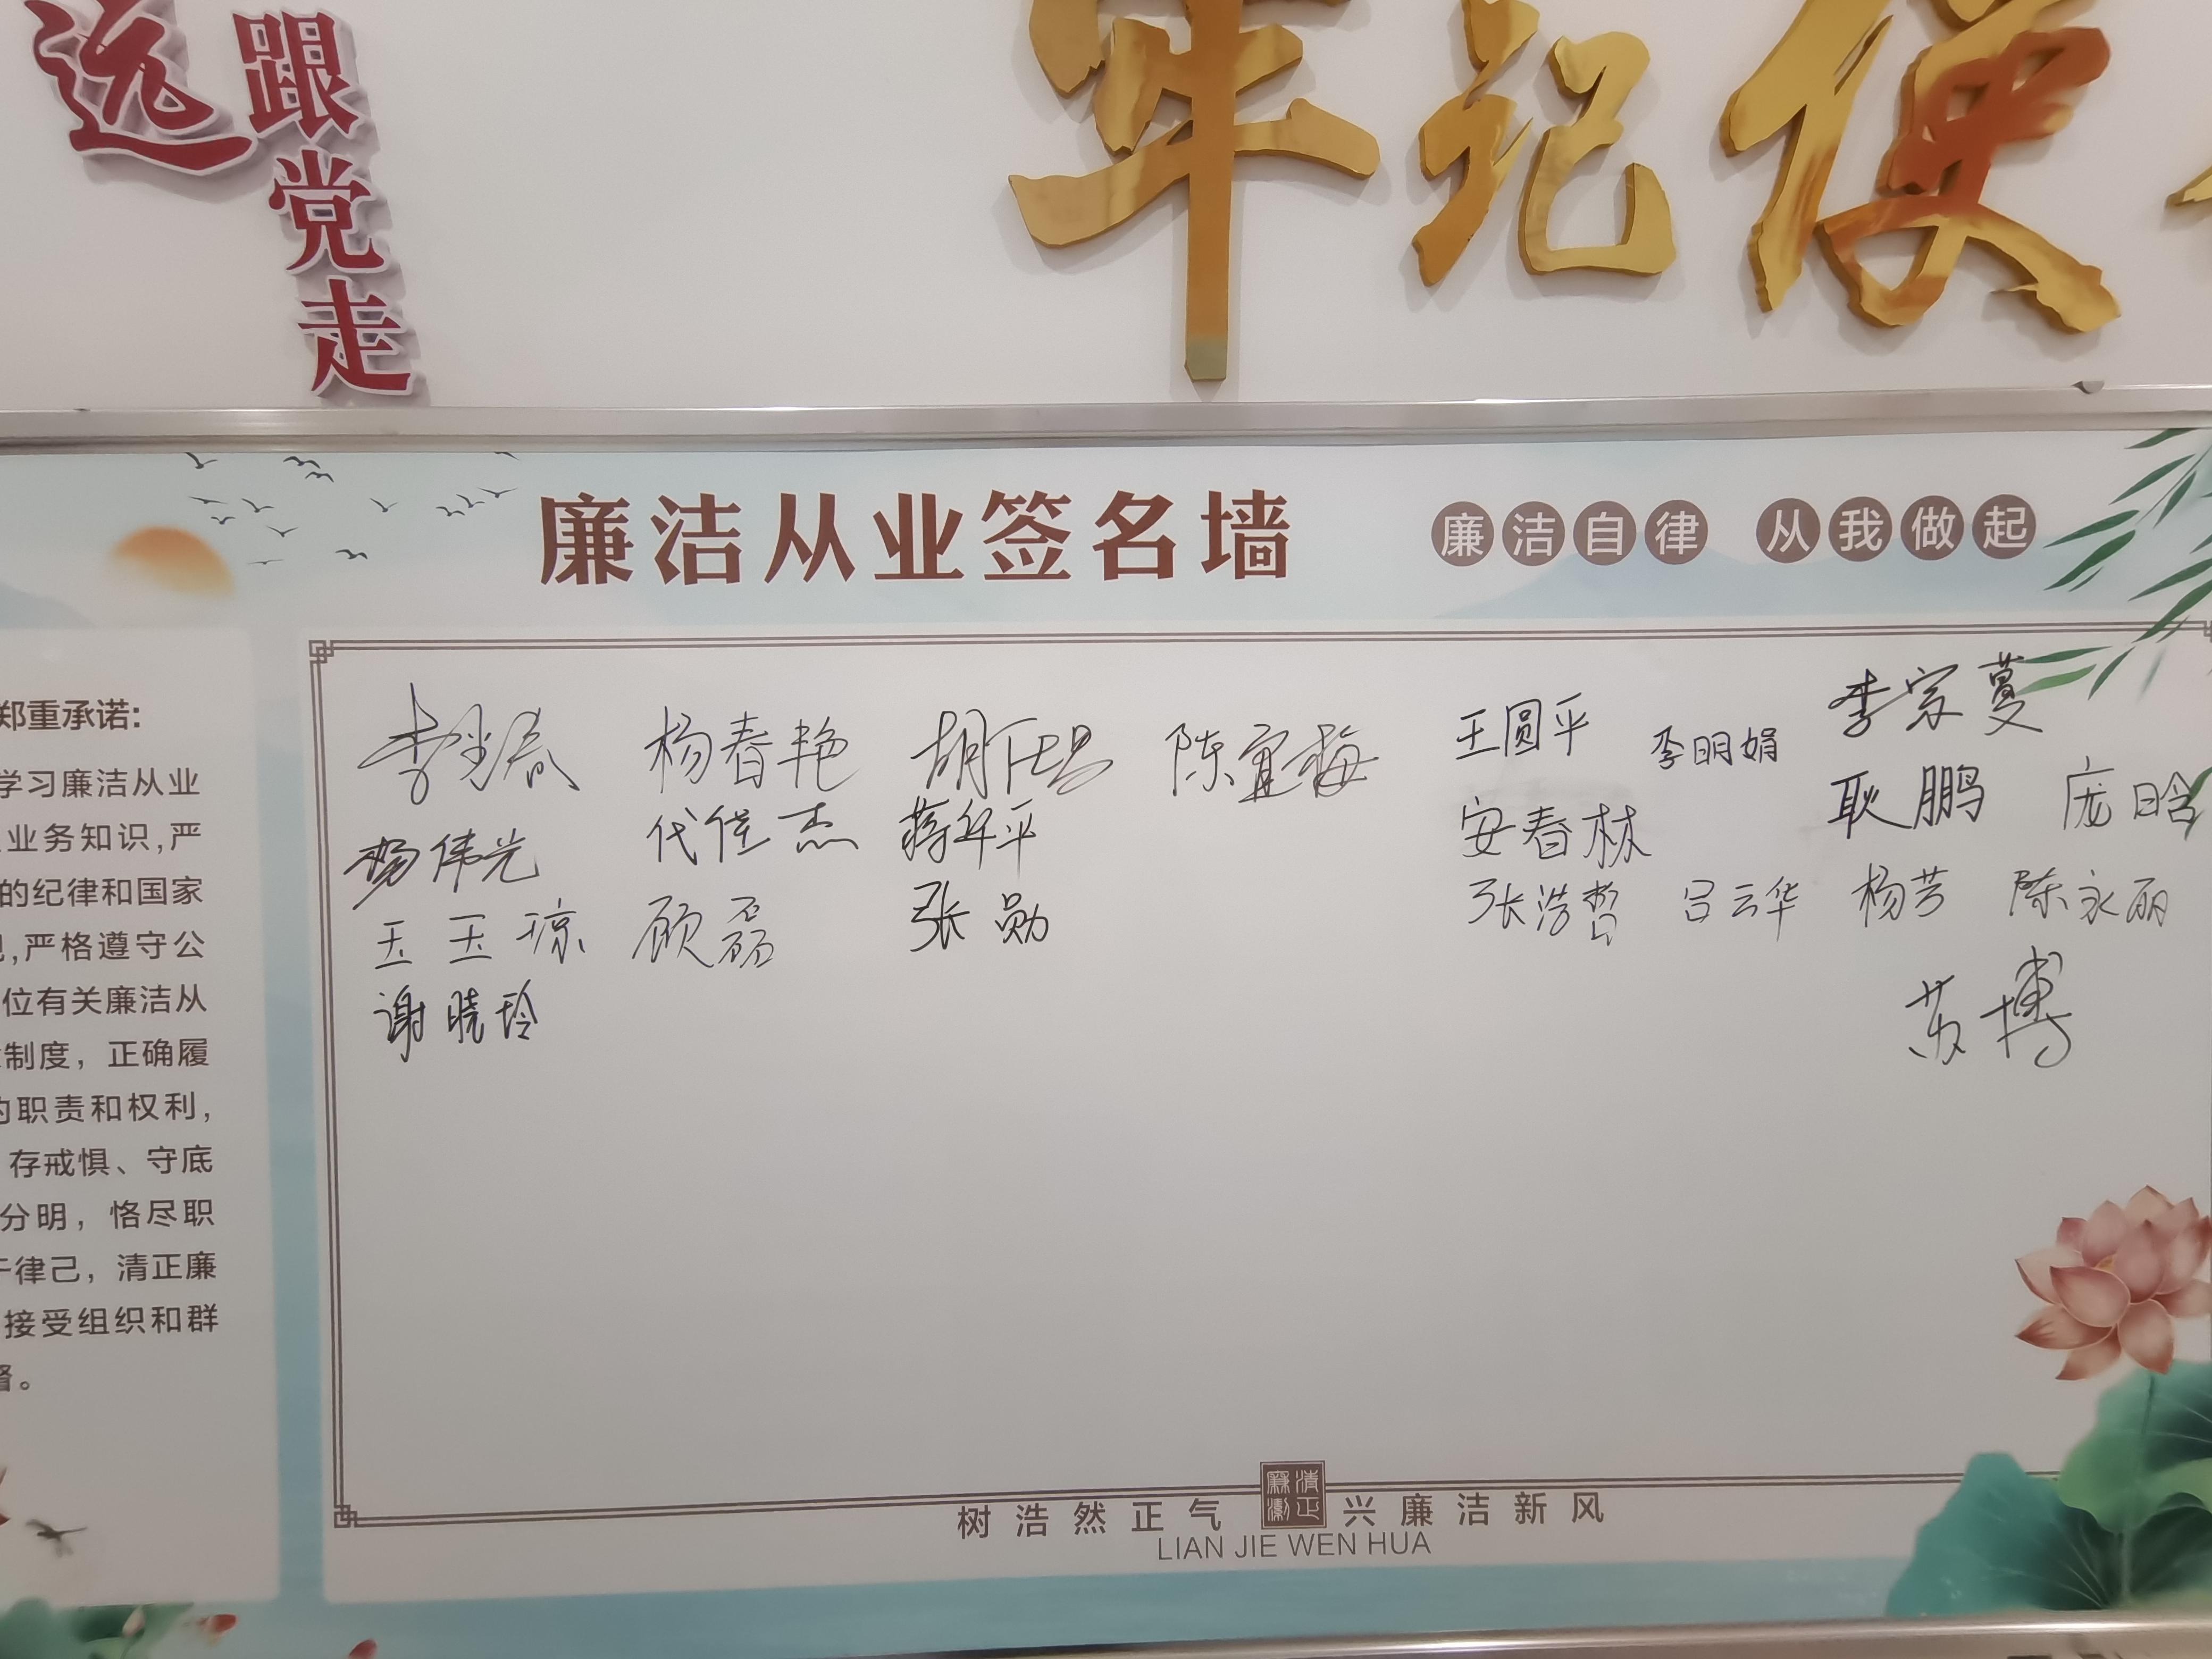 远
跟党走
牢记使
廉洁从业签名墙
廉洁自律 从我做起
郑重承诺:
学习廉洁从业
业务知识,严
的纪律和国家
,严格遵守公
位有关廉洁从
制度，正确履
的职责和权利，
存戒惧、守底
分明，恪尽职
于律己，清正廉
接受组织和群
督。
杨春艳
陈宜梅
王圆平
李明娟
李家蔓
杨伟光
代佳杰
蒋年平
安春林
耿鹏
庞晗
王玉琼
顾磊
张勋
张浩哲
吕云华
杨芳
陈永丽
谢晓玲
苏博
树浩然正气
清正廉洁
兴廉洁新风
LIAN JIE WEN HUA